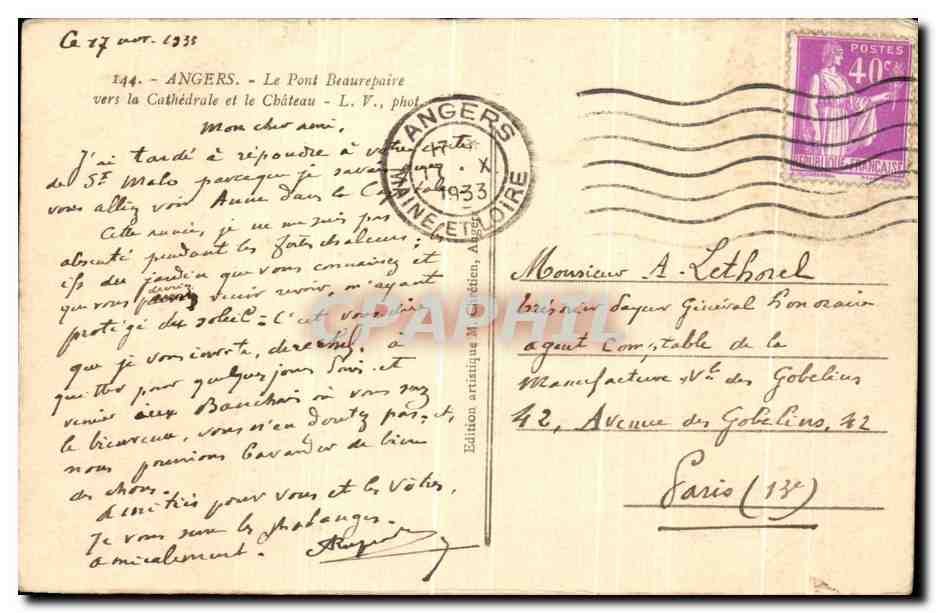 Ce 17 nov. 1933
144. - ANGERS. - Le Pont Beaurepaire
vers la Cathédrale et le Château - L. V., phot.
Mon cher ami,
J'ai tardé à répondre à votre carte
de St Malo parceque je savais que
vous alliez voir Anne dans le
Cette année, je ne me suis pas
absenté pendant les fortes chaleurs ; les
ifs du jardin que vous connaissez et
que vous devriez venir revoir, m'ayant
protégé du soleil = C'est vous dire
que je vous invite, derechef, à
quitter pour quelques jours Paris et
venir aux Banchais où vous serez
le bienvenu, vous n'en doutez pas, et,
nous pourrions bavarder de bien
des choses.
Amitiés pour vous et les vôtres,
Je vous serre les phalanges
amicalement.
ANGERS
17
17 · X
1933
MAINE-ET-LOIRE
POSTES
40c
REPUBLIQUE FRANÇAISE
Edition artistique M. Chrétien, Angers
Monsieur A. Lethorel
trésorier payeur Général honoraire
agent Comptable de la
Manufacture Nle des Gobelins
42, Avenue des Gobelins, 42
Paris (13e)
CPAPHIL